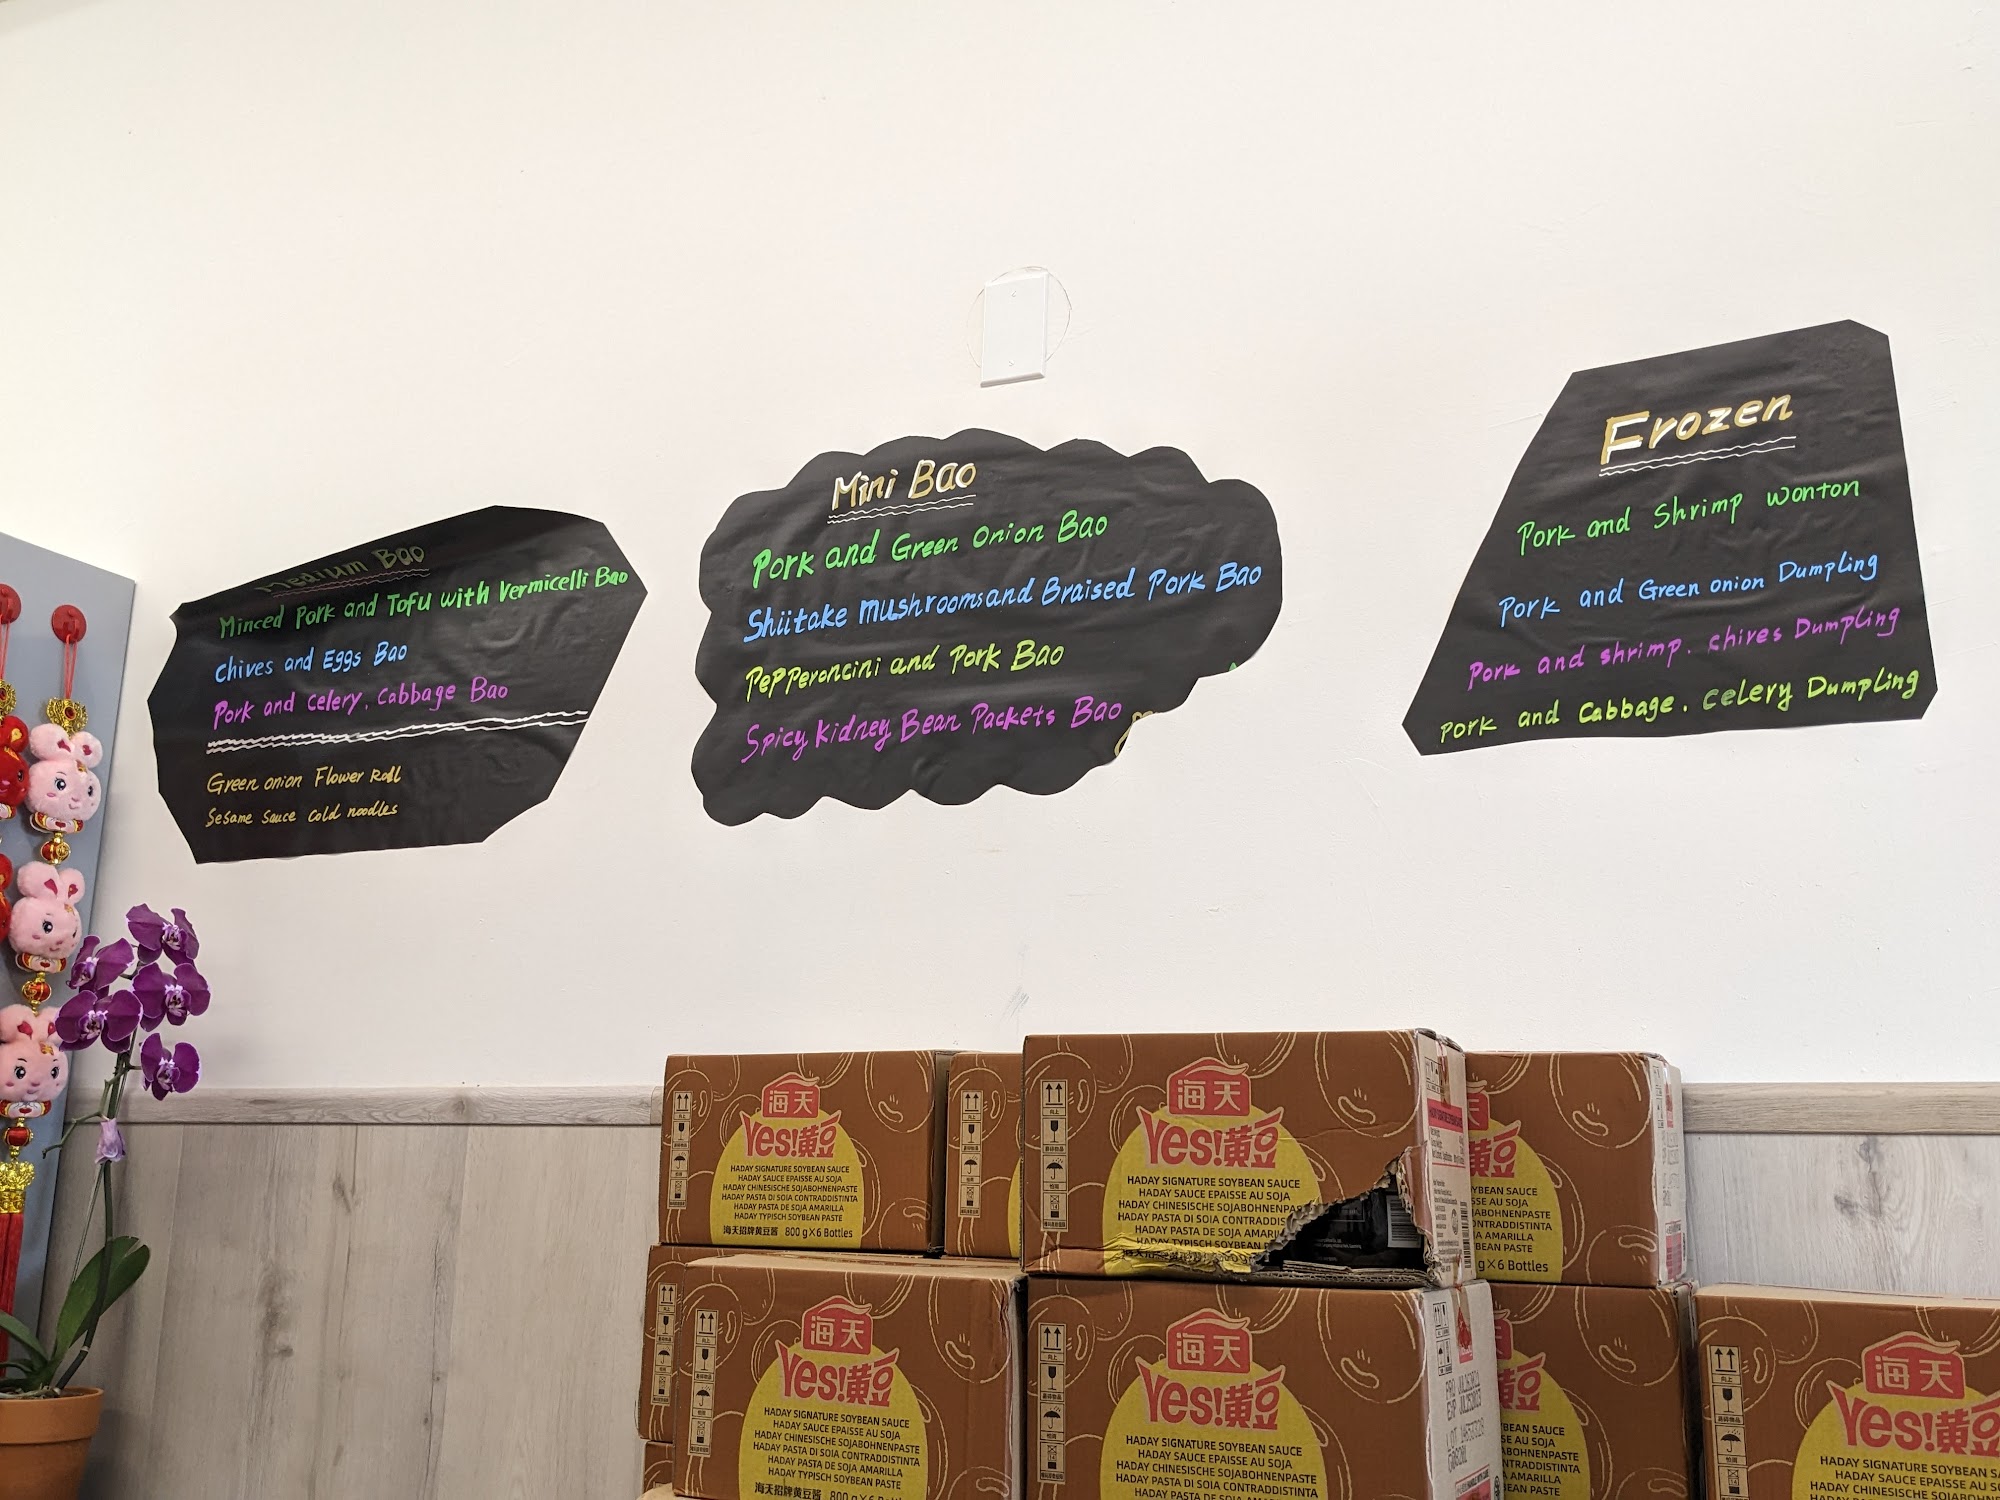 Medium Bao
Minced Pork and Tofu with Vermicelli Bao
chives and Eggs Bao
Pork and celery, cabbage Bao
Green onion Flower Roll
Sesame Sauce cold noodles
Mini Bao
Pork and Green Onion Bao
Shiitake mushrooms and Braised Pork Bao
Pepperoncini and Pork Bao
Spicy Kidney Bean Packets Bao
Frozen
Pork and Shrimp wonton
Pork and Green onion Dumpling
Pork and shrimp. chives Dumpling
Pork and Cabbage. Celery Dumpling
海天
Yes!黄豆
HADAY SIGNATURE SOYBEAN SAUCE
HADAY SAUCE EPAISSE AU SOJA
HADAY CHINESISCHE SOJABOHNENPASTE
HADAY PASTA DI SOIA CONTRADDISTINTA
HADAY PASTA DE SOJA AMARILLA
HADAY TYPISCH SOYBEAN PASTE
海天招牌黄豆酱 800 g×6 Bottles
海天
Yes!黄豆
HADAY SIGNATURE SOYBEAN SAUCE
HADAY SAUCE EPAISSE AU SOJA
HADAY CHINESISCHE SOJABOHNENPAS
HADAY PASTA DI SOIA CONTRADDIS
HADAY PASTA DE SOJA AMARIL
HADAY TYPISCH SOYBEAN P
天
Yes!黄豆
YBEAN SAUCE
SSE AU SOJA
ONTRADDISTINTA
BEAN PASTE
g×6 Bottles
海天
Yes!黄豆
HADAY SIGNATURE SOYBEAN SAUCE
HADAY SAUCE EPAISSE AU SOJA
HADAY CHINESISCHE SOJABOHNENPASTE
HADAY PASTA DI SOIA CONTRADDISTINTA
HADAY PASTA DE SOJA AMARILLA
HADAY TYPISCH SOYBEAN PASTE
海天招牌黄豆酱 800 g×6 Bottl
海天
Yes!黄豆
HADAY SIGNATURE SOYBEAN SAUCE
HADAY SAUCE EPAISSE AU SOJA
HADAY CHINESISCHE SOJABOHNENPASTE
HADAY PASTA DI SOIA CONTRADDISTINTA
HADAY PASTA DE SOJA AMARILLA
海天
Yes!黄豆
HADAY SIGNATURE SOYBEAN SA
HADAY SAUCE EPAISSE AU SO
HADAY CHINESISCHE SOJABOHNE
HADAY PASTA DI SOIA CONTRADD